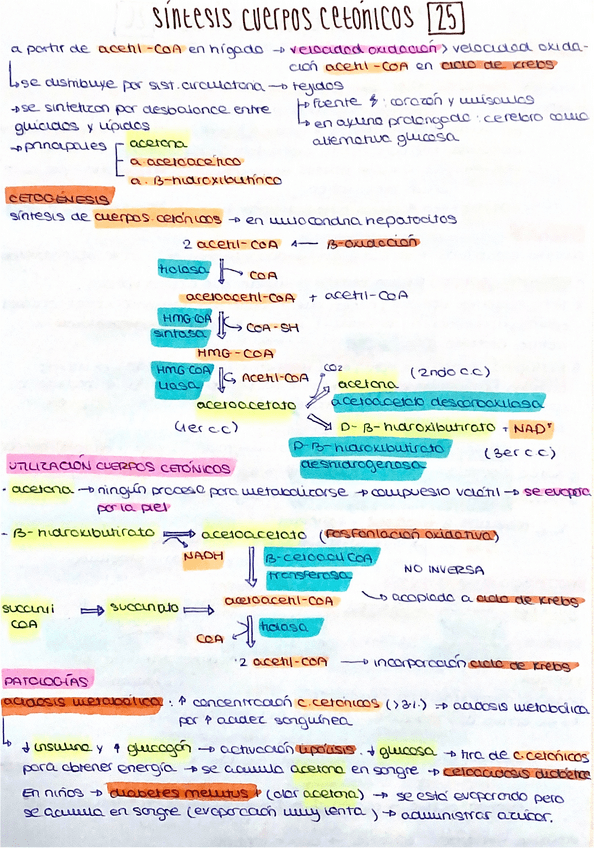 SÍNTESIS CUERPOS CETÓNICOS 25
a partir de acetil-CoA en hígado → velocidad oxidación > velocidad oxida-
ción acetil-CoA en ciclo de krebs
↳ se distribuye por sist. circulatorio → tejidos
→ se sintetizan por desbalance entre
glúcidos y lípidos
↳ fuente : corazón y músculos
↳ en ayuno prolongado : cerebro como
alternativa glucosa
→ principales
acetona
a. acetoacético
a. β-hidroxibutírico
CETOGÉNESIS
síntesis de cuerpos cetónicos → en mitocondria hepatocitos
2 acetil-CoA ← β-oxidación
tiolasa
CoA
acetoacetil-CoA + acetil-CoA
HMG CoA
sintasa
CoA-SH
HMG-CoA
HMG CoA
liasa
Acetil-CoA
CO2
acetona (2ndo c.c)
acetoacetato descarboxilasa
acetoacetato
(1er c.c)
D-β-hidroxibutirato + NAD+
D-β-hidroxibutirato
deshidrogenasa
(3er c.c)
UTILIZACIÓN CUERPOS CETÓNICOS
- acetona → ningún proceso para metabolizarse → compuesto volátil → se evapora
por la piel
- β-hidroxibutirato ⇒ acetoacetato (fosforilación oxidativa)
NADH
β-cetoacil CoA
transferasa
NO INVERSA
↳ acoplado a ciclo de krebs
succinil
CoA
⇒ succinato ⇒ acetoacetil-CoA
CoA
tiolasa
2 acetil-CoA → incorporación ciclo de krebs
PATOLOGÍAS
acidosis metabólica : ↑ concentración c. cetónicos → acidosis metabólica
por ↑ acidez sanguínea
↳ ↓ insulina y ↑ glucagón → activación lipólisis. ↓ glucosa → tira de c. cetónicos
para obtener energía → se acumula acetona en sangre → cetoacidosis diabética
En niños → diabetes mellitus (olor acetona) → se está evaporando pero
se acumula en sangre (evaporación muy lenta) → administrar azúcar.